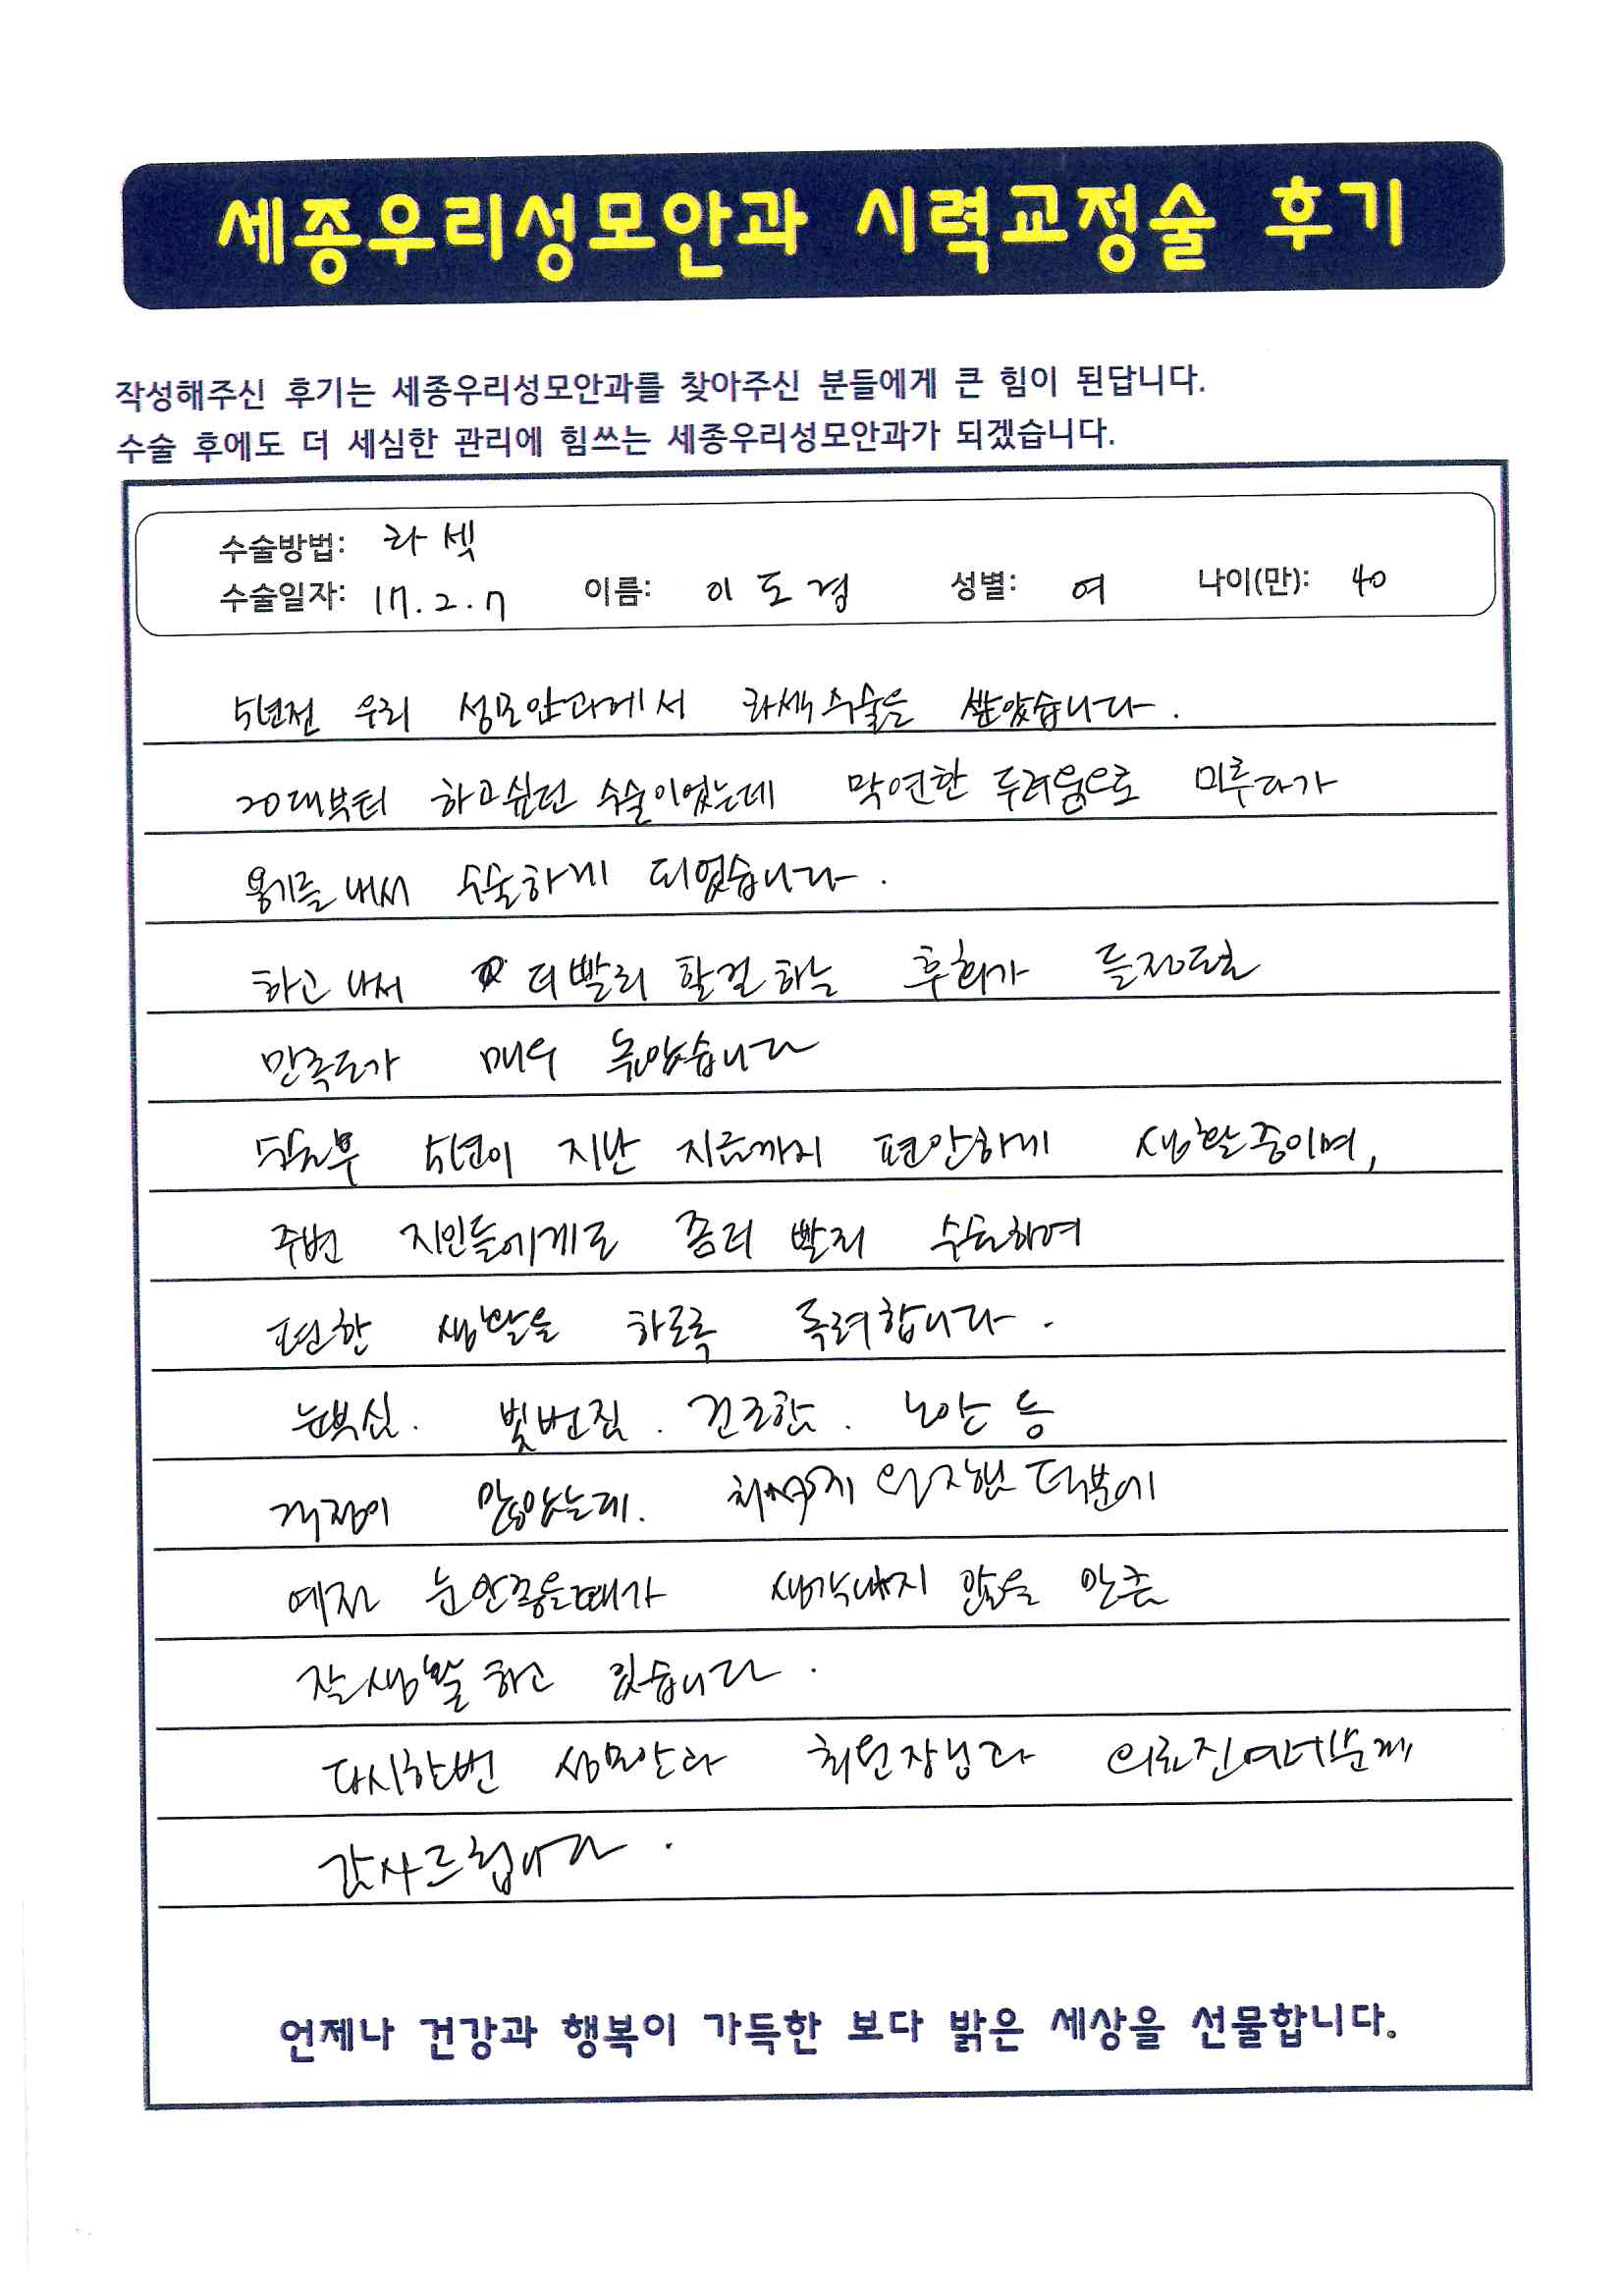 세종우리성모안과 시력교정술 후기
작성해주신 후기는 세종우리성모안과를 찾아주신 분들에게 큰 힘이 된답니다.
수술 후에도 더 세심한 관리에 힘쓰는 세종우리성모안과가 되겠습니다.
수술방법: 라섹
수술일자: 17. 2. 7 이름: 이도경 성별: 여 나이(만): 40
5년전 우리 성모안과에서 라섹수술을 받았습니다.
20대부터 하고싶던 수술이었는데 막연한 두려움으로 미루다가
용기를 내서 수술하게 되었습니다.
하고 나서 더 빨리 할걸 하는 후회가 들정도로
만족도가 매우 높았습니다
수술후 5년이 지난 지금까지 편안하게 생활중이며,
주변 지인들에게도 좀더 빨리 수술하여
편한 생활을 하도록 독려합니다.
눈부심. 빛번짐. 건조함. 노안 등
걱정이 많았는데. 덕분에
예전 눈안좋을때가 생각나지 않을 만큼
잘생활하고 있습니다.
다시한번 성모안과 최원장님과 의료진여러분께
감사드립니다.
언제나 건강과 행복이 가득한 보다 밝은 세상을 선물합니다.